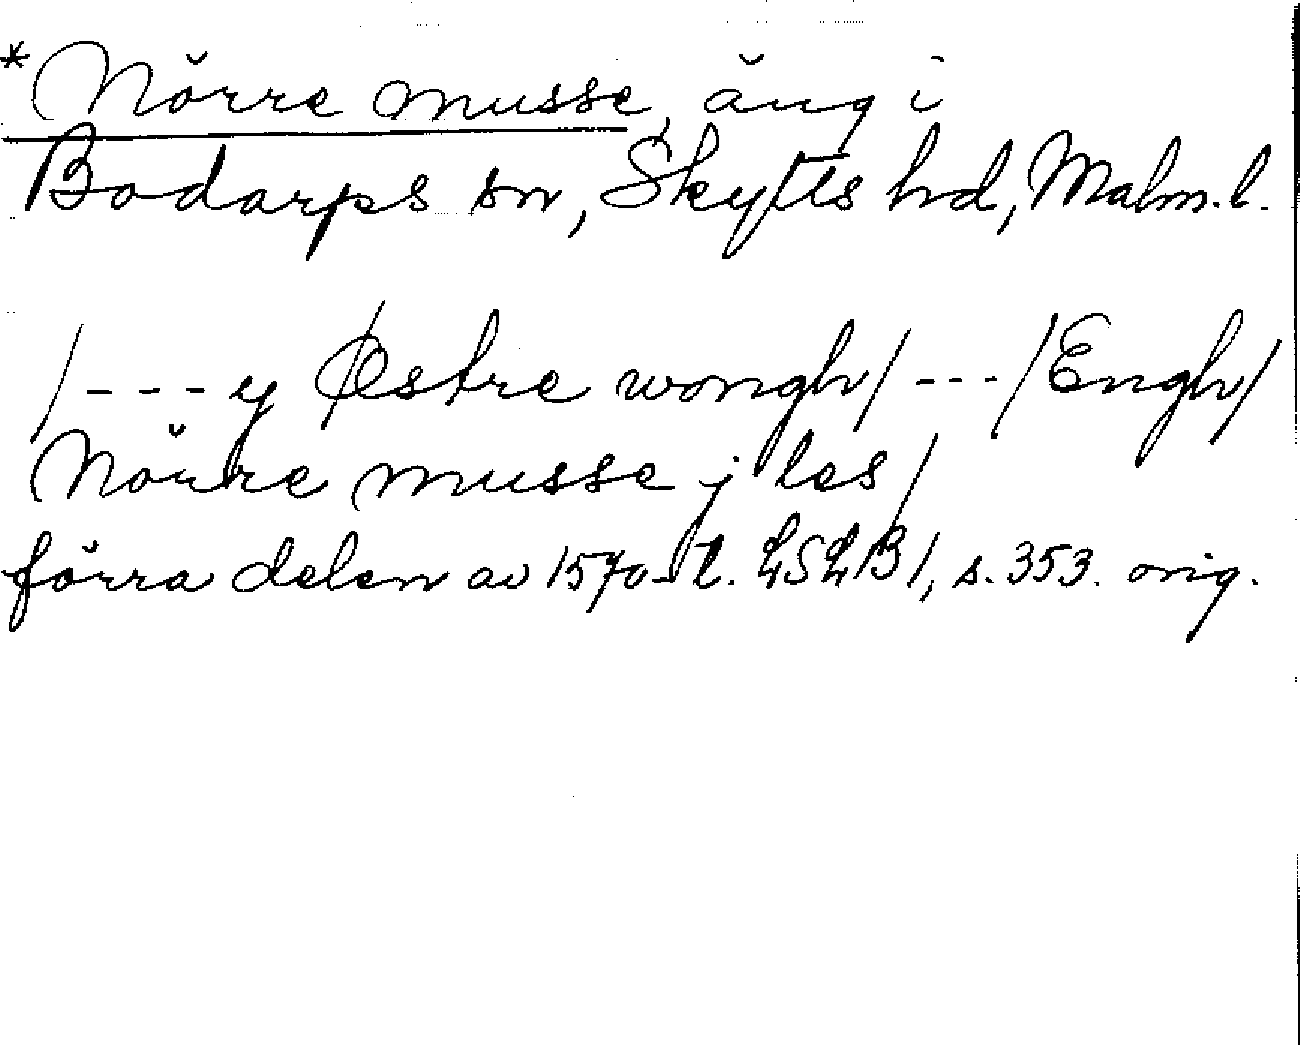 *Nörre musse, äng i
Bodarps sn, Skytts hd, Malm.l.
/---y Østre wongh/---/Engh/
Nörre musse j les/
förra delen av 1570-t. LSLB1, s. 353. orig.